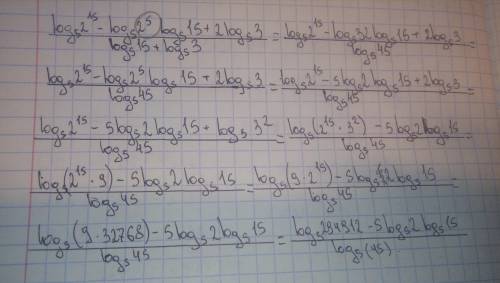 (log₅2¹⁵ - log₅2⁵ log₅15 + 2log₅3)/(log₅15 + log₅3) = (log₅2¹⁵ - log₅32 log₅15 + 2log₅3)/(log₅45) =
(log₅2¹⁵ - log₅2⁵ log₅15 + 2log₅3)/(log₅45) = (log₅2¹⁵ - 5log₅2 log₅15 + 2log₅3)/(log₅45) =
(log₅2¹⁵ - 5log₅2 log₅15 + log₅3²)/(log₅45) = (log₅(2¹⁵·3²) - 5log₅2 log₅15)/(log₅45) =
(log₅(2¹⁵·9) - 5log₅2 log₅15)/(log₅45) = (log₅(9·2¹⁵) - 5log₅2 log₅15)/(log₅45) =
(log₅(9·32768) - 5log₅2 log₅15)/(log₅45) = (log₅294912 - 5log₅2 log₅15)/(log₅(45))